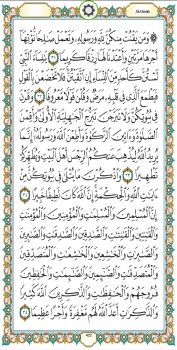 Al-Ahzab
۞ وَمَن يَقْنُتْ مِنكُنَّ لِلَّهِ وَرَسُولِهِۦ وَتَعْمَلْ صَٰلِحًا نُّؤْتِهَآ
أَجْرَهَا مَرَّتَيْنِ وَأَعْتَدْنَا لَهَا رِزْقًا كَرِيمًا ٣١ يَٰنِسَآءَ ٱلنَّبِىِّ
لَسْتُنَّ كَأَحَدٍ مِّنَ ٱلنِّسَآءِ إِنِ ٱتَّقَيْتُنَّ فَلَا تَخْضَعْنَ بِٱلْقَوْلِ
فَيَطْمَعَ ٱلَّذِى فِى قَلْبِهِۦ مَرَضٌ وَقُلْنَ قَوْلًا مَّعْرُوفًا ٣٢ وَقَرْنَ
فِى بُيُوتِكُنَّ وَلَا تَبَرَّجْنَ تَبَرُّجَ ٱلْجَٰهِلِيَّةِ ٱلْأُولَىٰ وَأَقِمْنَ
ٱلصَّلَوٰةَ وَءَاتِينَ ٱلزَّكَوٰةَ وَأَطِعْنَ ٱللَّهَ وَرَسُولَهُۥٓ إِنَّمَا
يُرِيدُ ٱللَّهُ لِيُذْهِبَ عَنكُمُ ٱلرِّجْسَ أَهْلَ ٱلْبَيْتِ وَيُطَهِّرَكُمْ
تَطْهِيرًا ٣٣ وَٱذْكُرْنَ مَا يُتْلَىٰ فِى بُيُوتِكُنَّ مِنْ
ءَايَٰتِ ٱللَّهِ وَٱلْحِكْمَةِ إِنَّ ٱللَّهَ كَانَ لَطِيفًا خَبِيرًا ٣٤
إِنَّ ٱلْمُسْلِمِينَ وَٱلْمُسْلِمَٰتِ وَٱلْمُؤْمِنِينَ وَٱلْمُؤْمِنَٰتِ
وَٱلْقَٰنِتِينَ وَٱلْقَٰنِتَٰتِ وَٱلصَّٰدِقِينَ وَٱلصَّٰدِقَٰتِ
وَٱلصَّٰبِرِينَ وَٱلصَّٰبِرَٰتِ وَٱلْخَٰشِعِينَ وَٱلْخَٰشِعَٰتِ وَٱلْمُتَصَدِّقِينَ
وَٱلْمُتَصَدِّقَٰتِ وَٱلصَّٰٓئِمِينَ وَٱلصَّٰٓئِمَٰتِ وَٱلْحَٰفِظِينَ
فُرُوجَهُمْ وَٱلْحَٰفِظَٰتِ وَٱلذَّٰكِرِينَ ٱللَّهَ كَثِيرًا
وَٱلذَّٰكِرَٰتِ أَعَدَّ ٱللَّهُ لَهُم مَّغْفِرَةً وَأَجْرًا عَظِيمًا ٣٥